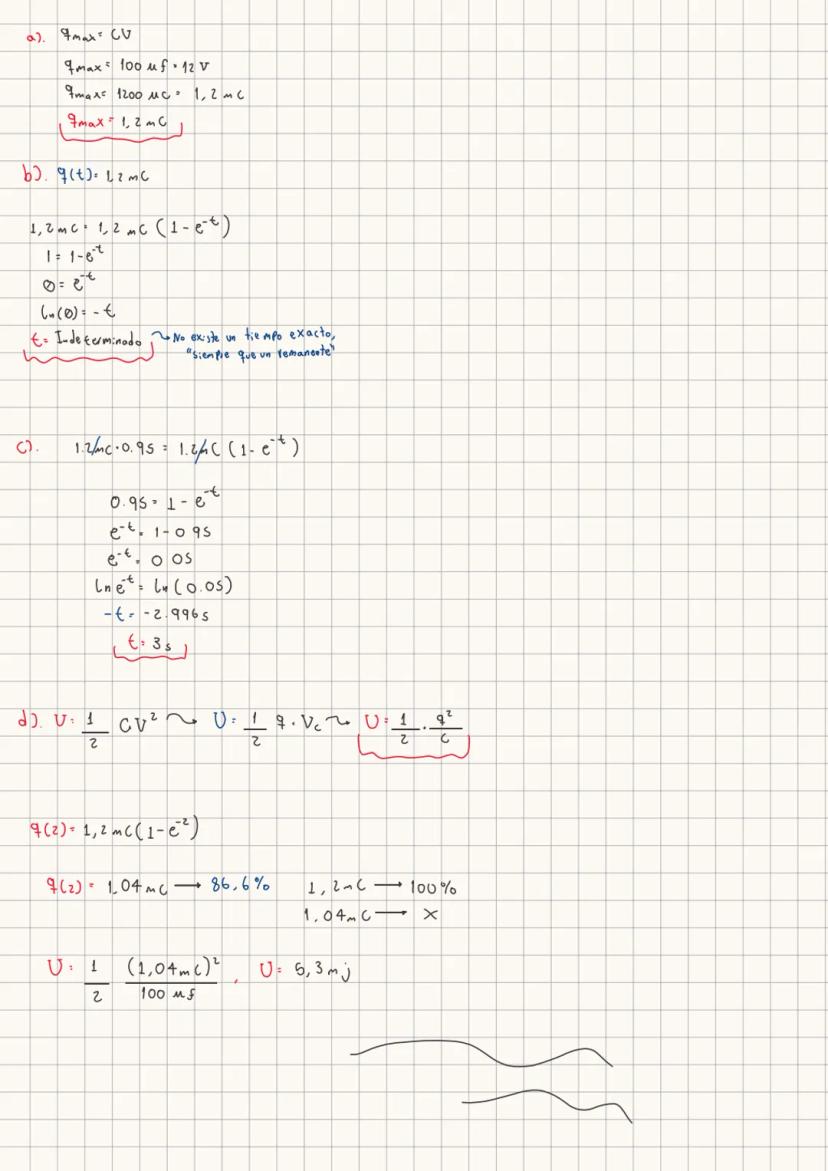 a). qmax = CV
qmax = 100 μf · 12 V
qmax = 1200 μC = 1,2 mC
qmax = 1,2 mC
b). q(t) = 1,2 mC
1,2 mC = 1,2 mC (1 - e^-t)
1 = 1 - e^-t
0 = e^-t
ln(0) = -t
t = Indeterminado → No existe un tiempo exacto,
"siempre que un remanente"
c). 1.2 mC · 0.95 = 1.2 mC (1 - e^-t)
0.95 = 1 - e^-t
e^-t = 1 - 0 95
e^-t = 0 05
ln e^-t = ln (0.05)
-t = -2.996s
t = 3s
d). U = 1/2 CV² → U = 1/2 q · Vc → U = 1/2 · q²/c
q(2) = 1,2 mC (1 - e^-2)
q(2) = 1,04 mC → 86,6% 1,2 mC → 100%
1,04 mC → X
U = 1/2 (1,04 mC)²/100 μf , U = 5,3 mj